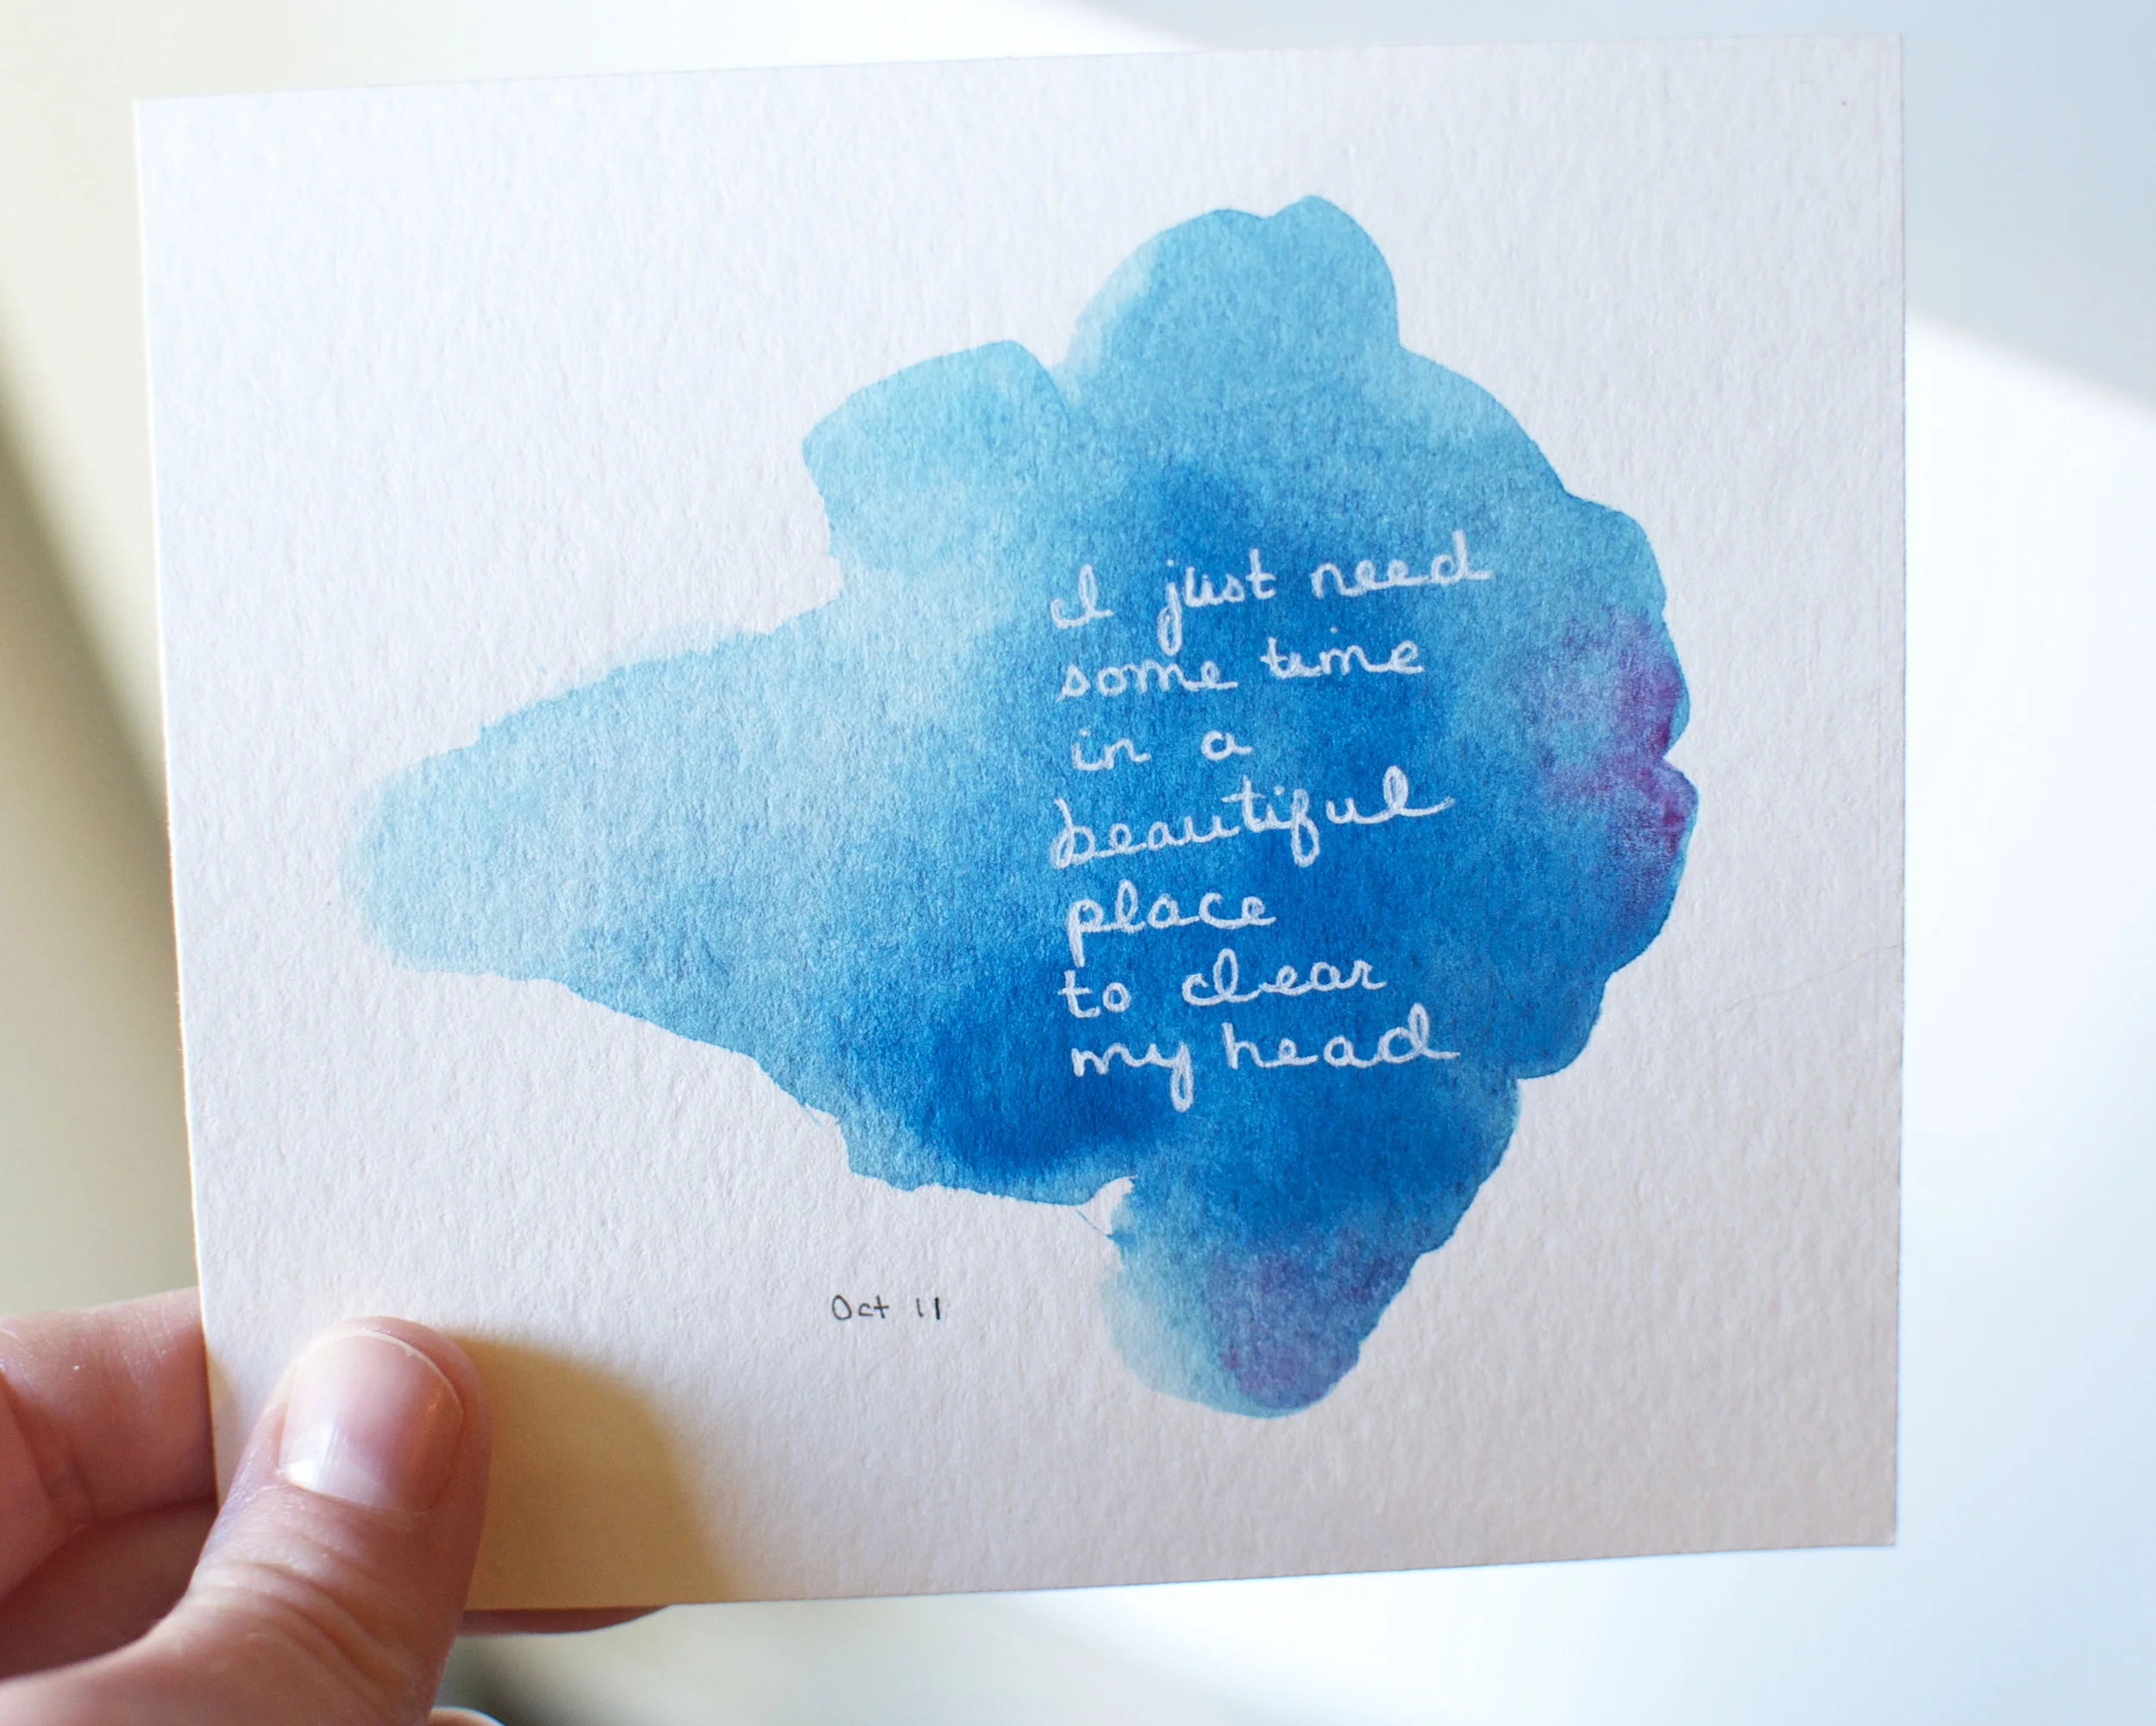 I just need
some time
in a
beautiful
place
to clear
my head
Oct 11